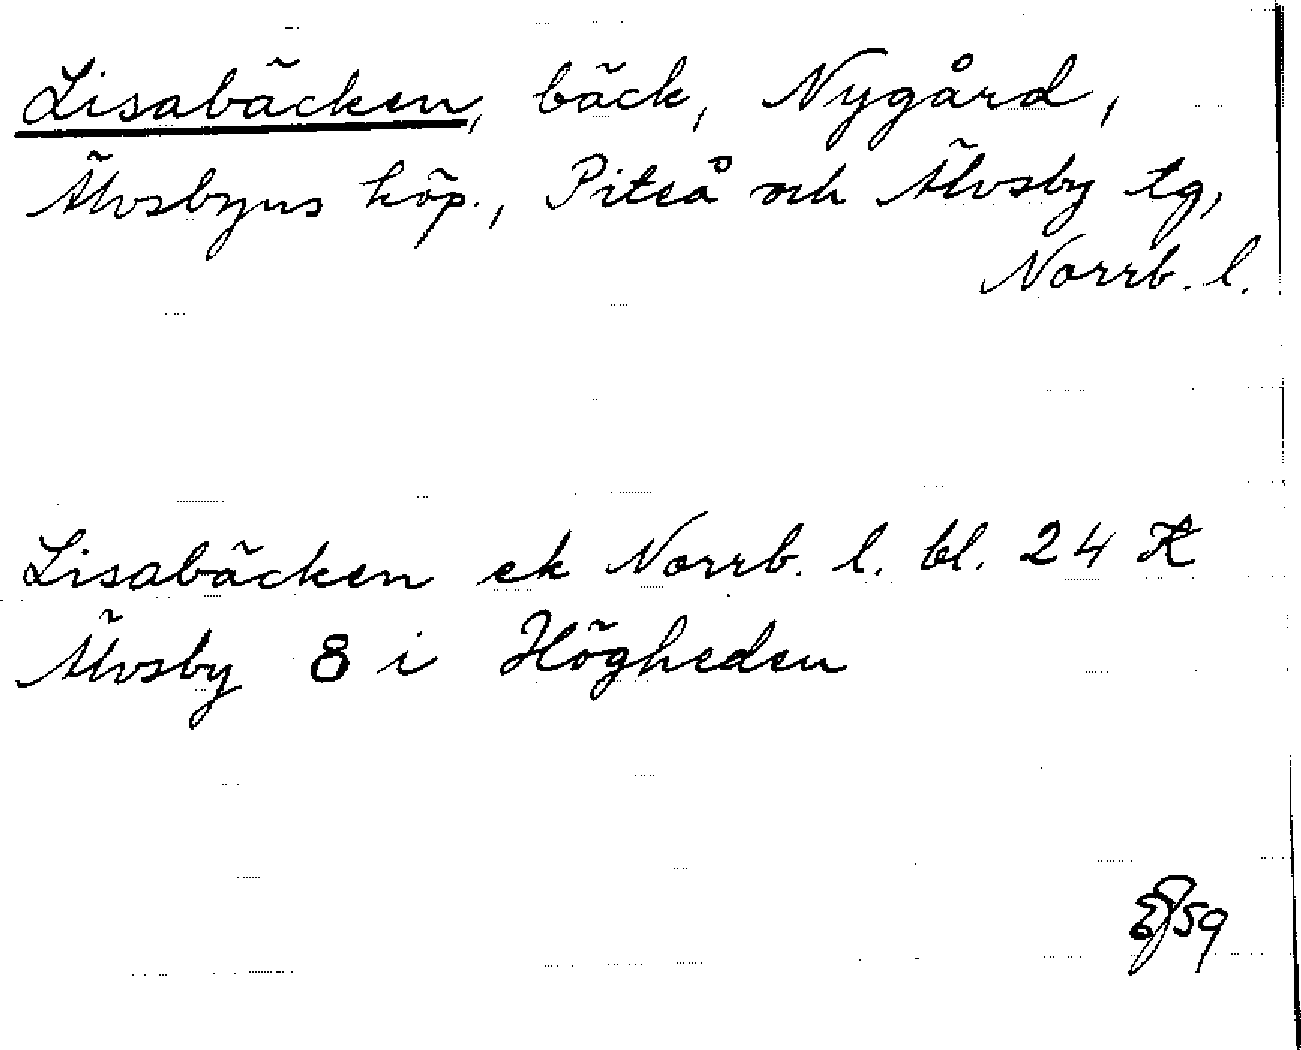 Lisabäcken, bäck, Nygård,
Älvsbyns köp., Piteå och Älvsby tg,
Norrb. l.
Lisabäcken ek Norrb. l. bl. 24 K
Älvsby 8 i Högheden
/59